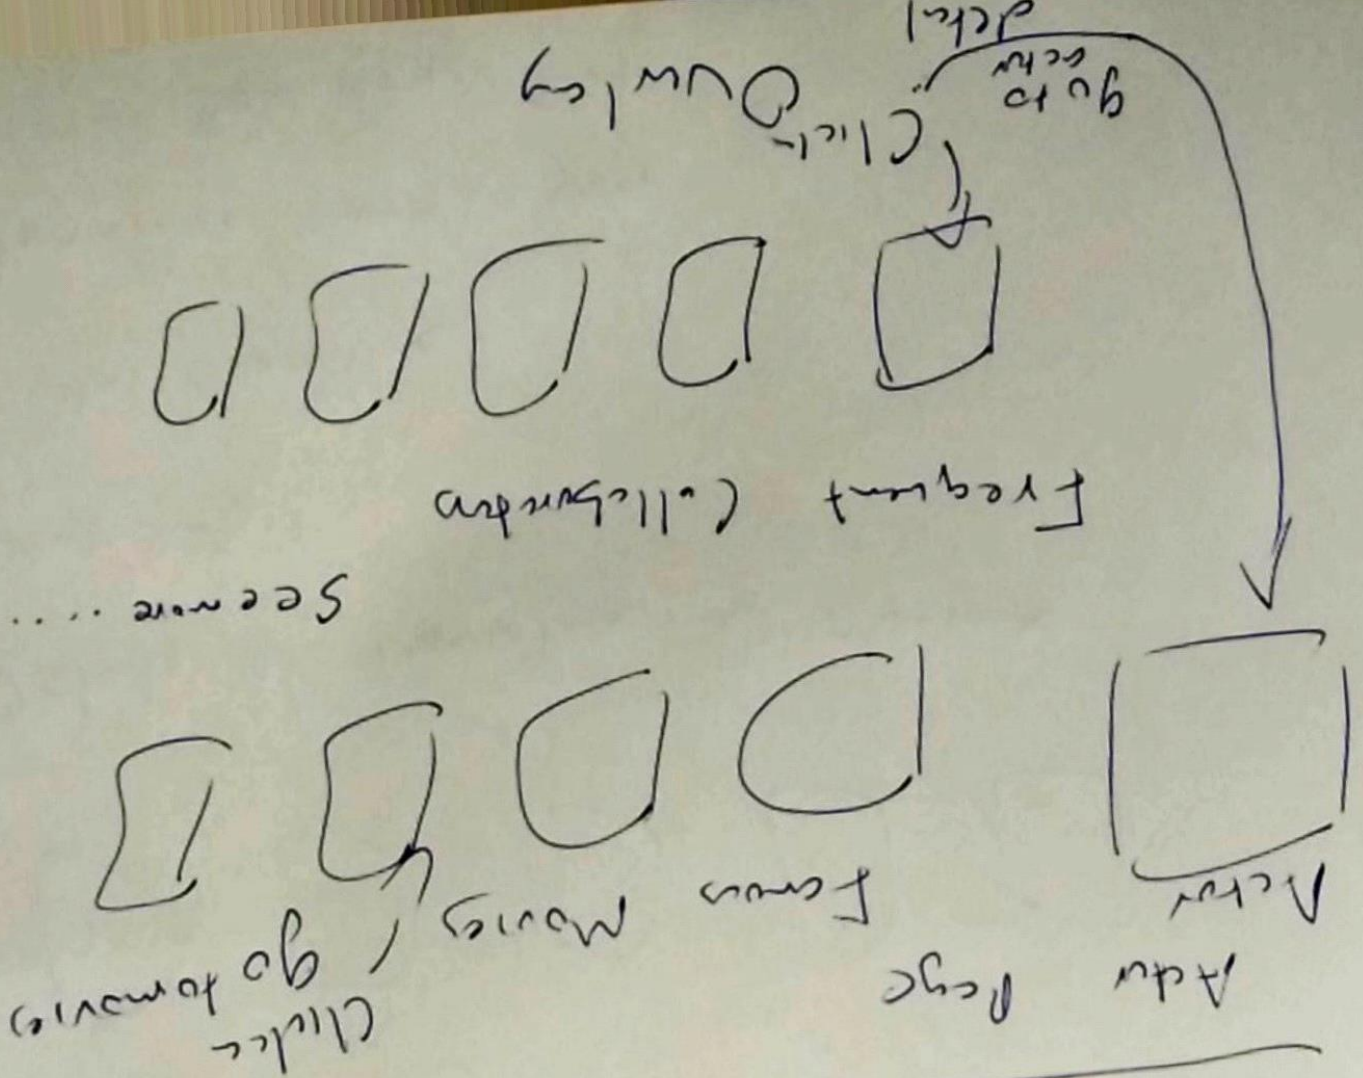 Actor Page
Actor
Famous Movies
Click
go to movies
See more .....
Frequent Collaborators
Click
Overlay
go to
actor
detail